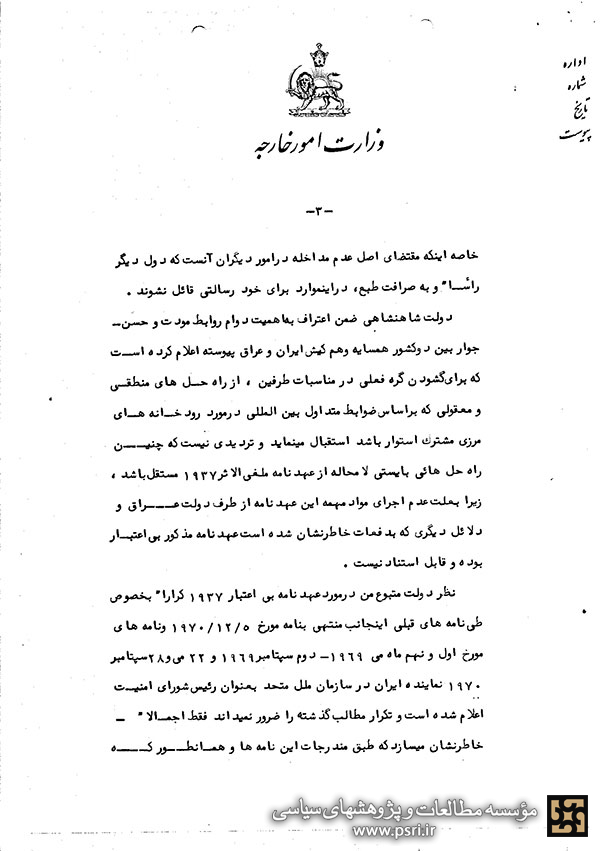 اداره
شماره
تاریخ
پیوست
وزارت امور خارجه
-۳-
خاصه اینکه مقتضای اصل عدم مداخله در امور دیگران آنست که دول دیگر
راسا" و به صرافت طبع، در اینموارد برای خود رسالتی قائل نشوند .
دولت شاهنشاهی ضمن اعتراف به اهمیت دوام روابط مودت و حسن-
جوار بین دو کشور همسایه و هم کیش ایران و عراق پیوسته اعلام کرده است
که برای گشودن گره فعلی در مناسبات طرفین ، از راه حل های منطقی
و معقولی که بر اساس ضوابط متداول بین المللی در مورد رود خانه های
مرزی مشترك استوار باشد استقبال مینماید و تردیدی نیست که چنین
راه حل هائی بایستی لا محاله از عهد نامه ملغی الاثر ۱۹۳۷ مستقل باشد ،
زیرا بعلت عدم اجرای مواد مهمه این عهد نامه از طرف دولت عراق و
دلائل دیگری که بدفعات خاطرنشان شده است عهد نامه مذکور بی اعتبار
بوده و قابل استناد نیست .
نظر دولت متبوع من در مورد عهد نامه بی اعتبار ۱۹۳۷ کرارا" بخصوص
طی نامه های قبلی اینجانب منتهی بنامه مورخ ۱۹۷۰/۱۲/۵ و نامه های
مورخ اول و نهم ماه می ۱۹۶۹- دوم سپتامبر ۱۹۶۹ و ۲۲ می و ۲۸ سپتامبر
۱۹۷۰ نماینده ایران در سازمان ملل متحد بعنوان رئیس شورای امنیت
اعلام شده است و تکرار مطالب گذشته را ضرور نمیداند فقط اجمالا" -
خاطرنشان میسازد که طبق مندرجات این نامه ها و همانطور که
مؤسسه مطالعات و پژوهشهای سیاسی
www.psri.ir